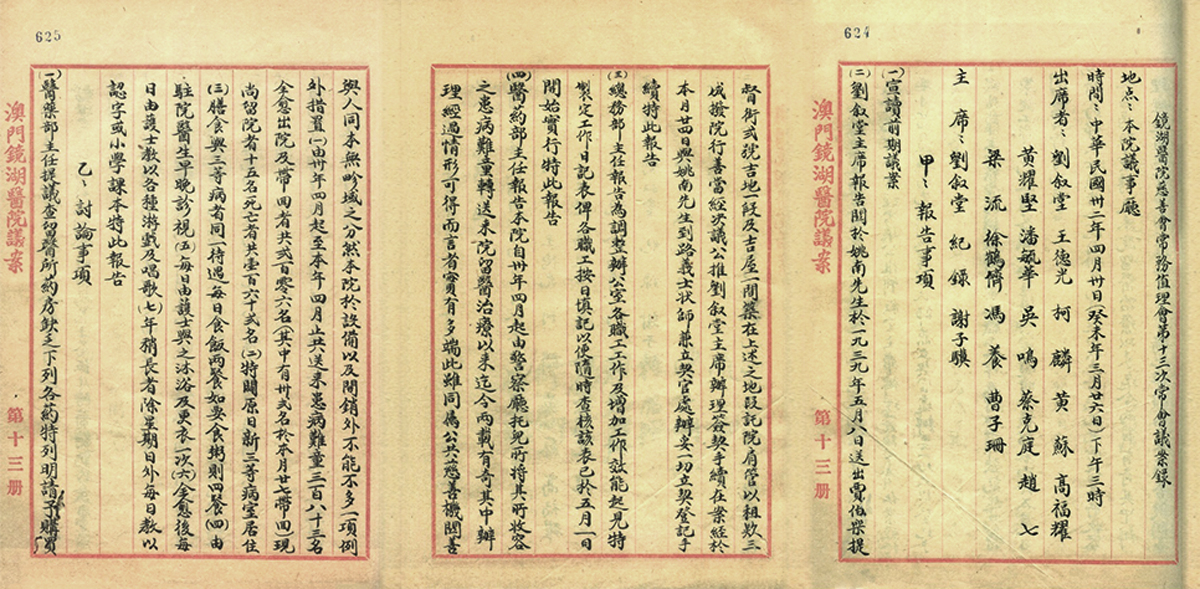 624
鏡湖醫院慈善會常務值理會第十三次常會議案錄
地點：本院議事廳
時間：中華民國卅二年四月卅日（癸未年三月廿六日）下午三時
出席者：劉叙堂 王德光 柯麟 黃蘇 高福耀
黃耀堅 潘毓華 吳鳴 蔡克庭 趙七
梁流 徐鶴儕 馮養 曹子珊
主席：劉叙堂 紀錄 謝子騏
甲、報告事項
（一）宣讀前期議案
（二）劉叙堂主席報告關於姚南先生於一九三九年五月八日送出賈伯樂提
澳門鏡湖醫院議案 第十三册
督街式號吉地一段及吉屋一間築在上述之地段託院肩管以租欵三
成撥院行善當經次議公推劉叙堂主席辦理簽契手續在案經於
本月廿四日與姚南先生到路義士狀師兼立契官處辦妥一切立契登記手
續特此報告
（三）總務部主任報告為調整辦公室各職工工作及增加工作效能起見特
製定工作日記表俾各職工按日填記以便隨時查核該表已於五月一日
開始實行特此報告
（四）醫葯部主任報告本院自卅年四月起由警察廳托兒所將其所收容
之患病難童轉送來院留醫治療以來迄今兩載有奇其中辦
理經過情形可得而言者實有多端此雖同属公共慈善機關善
625
與人同本無畛域之分然本院於設備以及開銷外不能不多一項例
外措置（一）由卅年四月起至本年四月止共送來患病難童三百八十三名
全愈出院及帶回者共式百零六名（其中有卅式名於本月廿七帶回）現
尚留院者十五名死亡者共壹百六十式名（二）特闢原日新三等病室居住
（三）膳食與三等病者同一待遇每日食飯兩餐如要食粥則四餐（四）由
駐院醫生早晚診視（五）每日由護士與之沐浴及更衣一次（六）全愈後每
日由護士教以各種游戲及唱歌（七）年稍長者除星期日外每日教以
認字或小學課本特此報告
乙、討論事項
（一）醫藥部主任提議查留醫所約房缺乏下列各葯特列明請予購買
澳門鏡湖醫院議案 第十三册